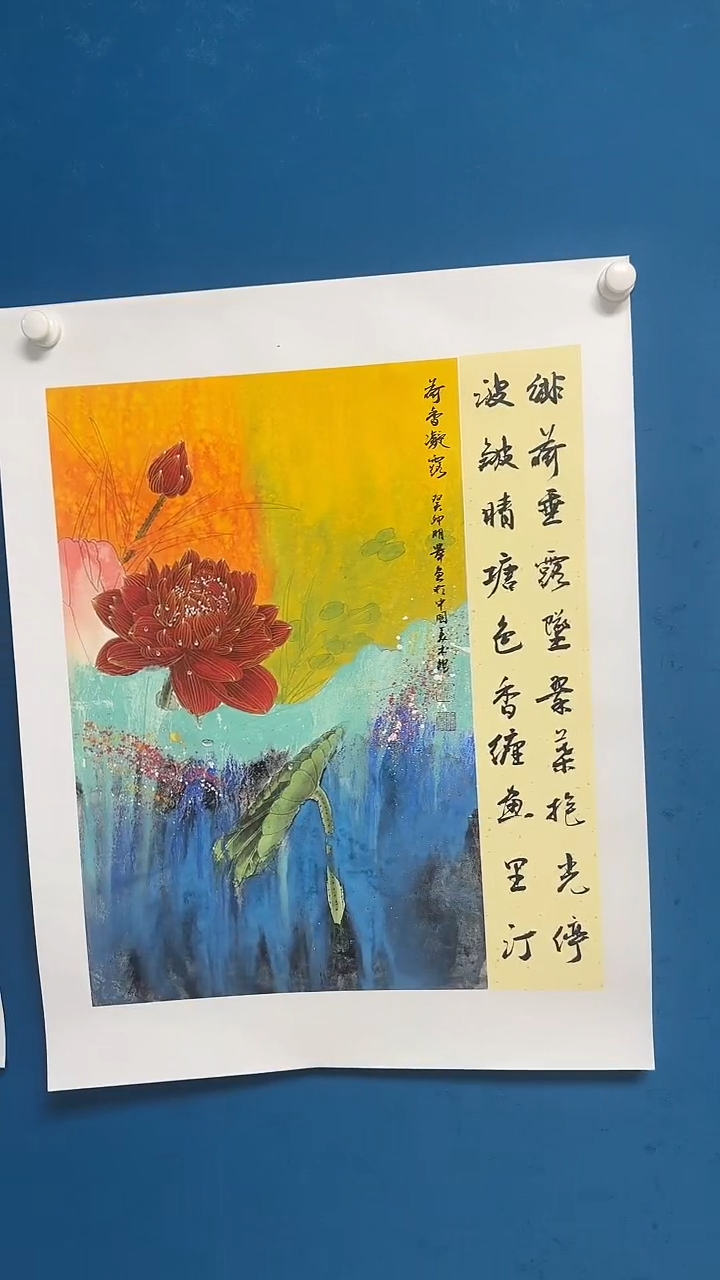 绯荷垂露坠翠叶抱光停
波皱晴塘色香缠画里汀
荷香凝露
癸卯明 画于中国美术馆